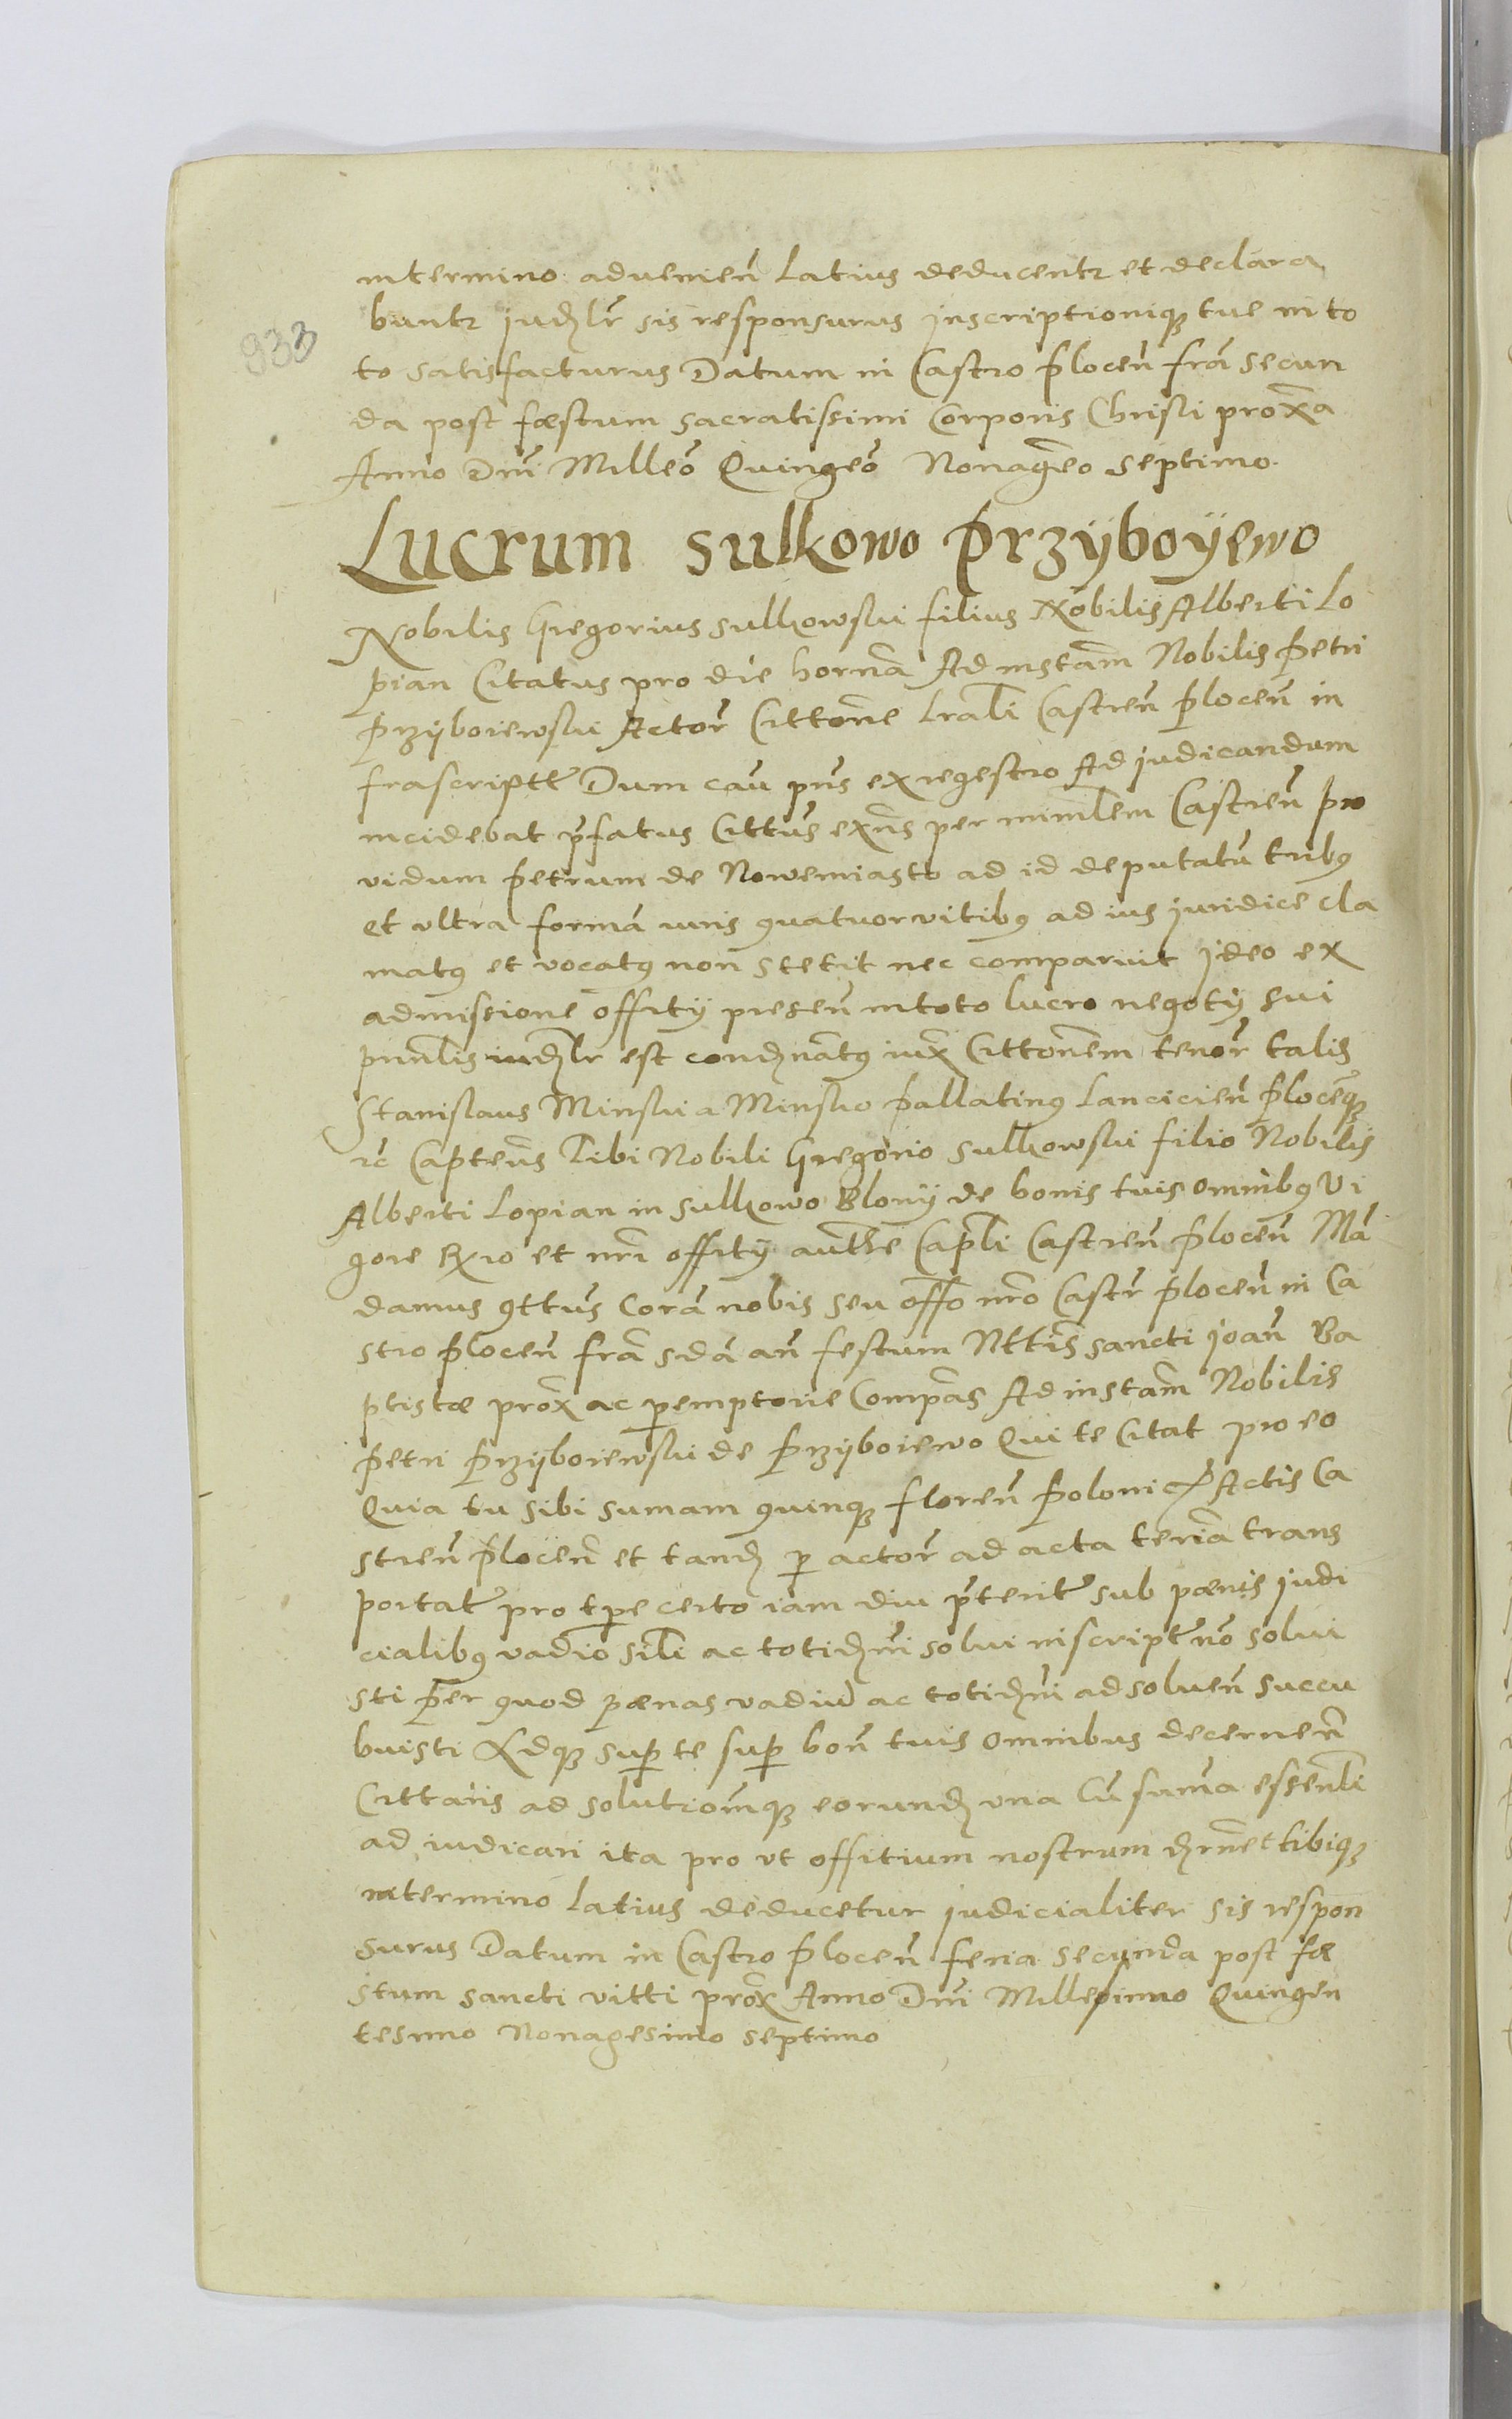 in termino advenien̄ Latius deducentr et declara
933
buntr judꝫlr̄ sis responsurus jnscriptioniqꝫ tue in to
to satisfacturus Datum in Castro plocen̄ fr̄a secun
da post fæstum sacratissimi Corporis Christi prox̄a
Anno Dn̄i Milleō Quingeō Nonag̅eo septimo.
Lucrum Sulkowo Przÿboÿewo
Nobilis Gregorius sulkowski filius Nobilis Alberti Lo
pian Citatus pro die horn̄a Ad instan̄ Nobilis Petri
przÿboiewski Actor̄ Cittone Lral̄i Castren̄ plocen̄ in
frascriptt Dum cau̅ pn̄s ex regestro Ad judicandum
incidebat p̄fatus Citt̄us exn̄s per min̄lem Castren̄ pro
vidum petrum de Nowemiasto ad id deputatū tribꝰ
et ultra formā iuris quatuor vitibꝰ ad ius juridice cla
matꝰ et vocatꝰ non stetit nec comparuit jdeo ex
admissione offitÿ presen̄ in toto lucro negotÿ sui
pnn̄lis iudꝫlr est condꝫnatꝰ iux̄ Cittonem tenor̄ talis
Stanislaus Minski a Minsko pallatinꝰ Lancicien̄ plocen̄qꝫ
rc Capten̄s Tibi Nobili Gregorio sulkowski filio Nobilis
Alberti Lopian in sulkowo Blonÿ de bonis tuis omnibꝰ Vi
gore Rx̄io et nr̄i offitÿ aut̄he Capl̄i Castren̄ plocen̄ Mā
damus qtt̄us Corā nobis seu offo nr̄o Castr̄ plocen̄ in Ca
stro plocen̄ fr̄a sdā an̄ festum Ntt̄is sancti joan̄ Ba
ptistæ prox̄ ac peremptorie Compas̄ Ad instan̄ Nobilis
petri przÿboiewski de przÿboiewo Qui te Citat pro eo
Quia tu sibi sumam quinqꝫ floren̄ poloni Actis Ca
stren̄ plocen̄ et tandꝫ p actor̄ ad acta terr̄ia trans
portat̄ pro tp̄e certo iam diu p̄terit̄ sub pænis judi
cialibꝰ vadio sil̄i ac totidꝫm̄i solvi inscript̄ nō solvi
sti p̄er quod pænas vadiū ac totidꝫm̄i ad soluen̄ succu
buisti Adqꝫ sup̄ te sup̄ bon̄ tuis omnibus decernen̄
Cittar̄is ad solutiom̄qꝫ eorundꝫ una Cū sum̄a essen̄li
ad iudicari ita pro ut offitium nostrum dꝫrn̄et tibiqꝫ
in termino latius deducetur judicialiter sis respon
surus Datum in Castro plocen̄ feria secunda post fæ
stum sancti vitti prox̄ Anno Dn̄i Millesimo Quingen
tesimo Nonagesimo septimo